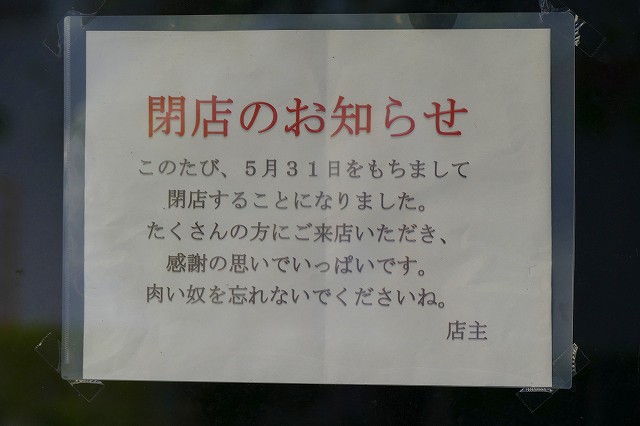 閉店のお知らせ
このたび、５月３１日をもちまして
閉店することになりました。
たくさんの方にご来店いただき、
感謝の思いでいっぱいです。
肉い奴を忘れないでくださいね。
店主